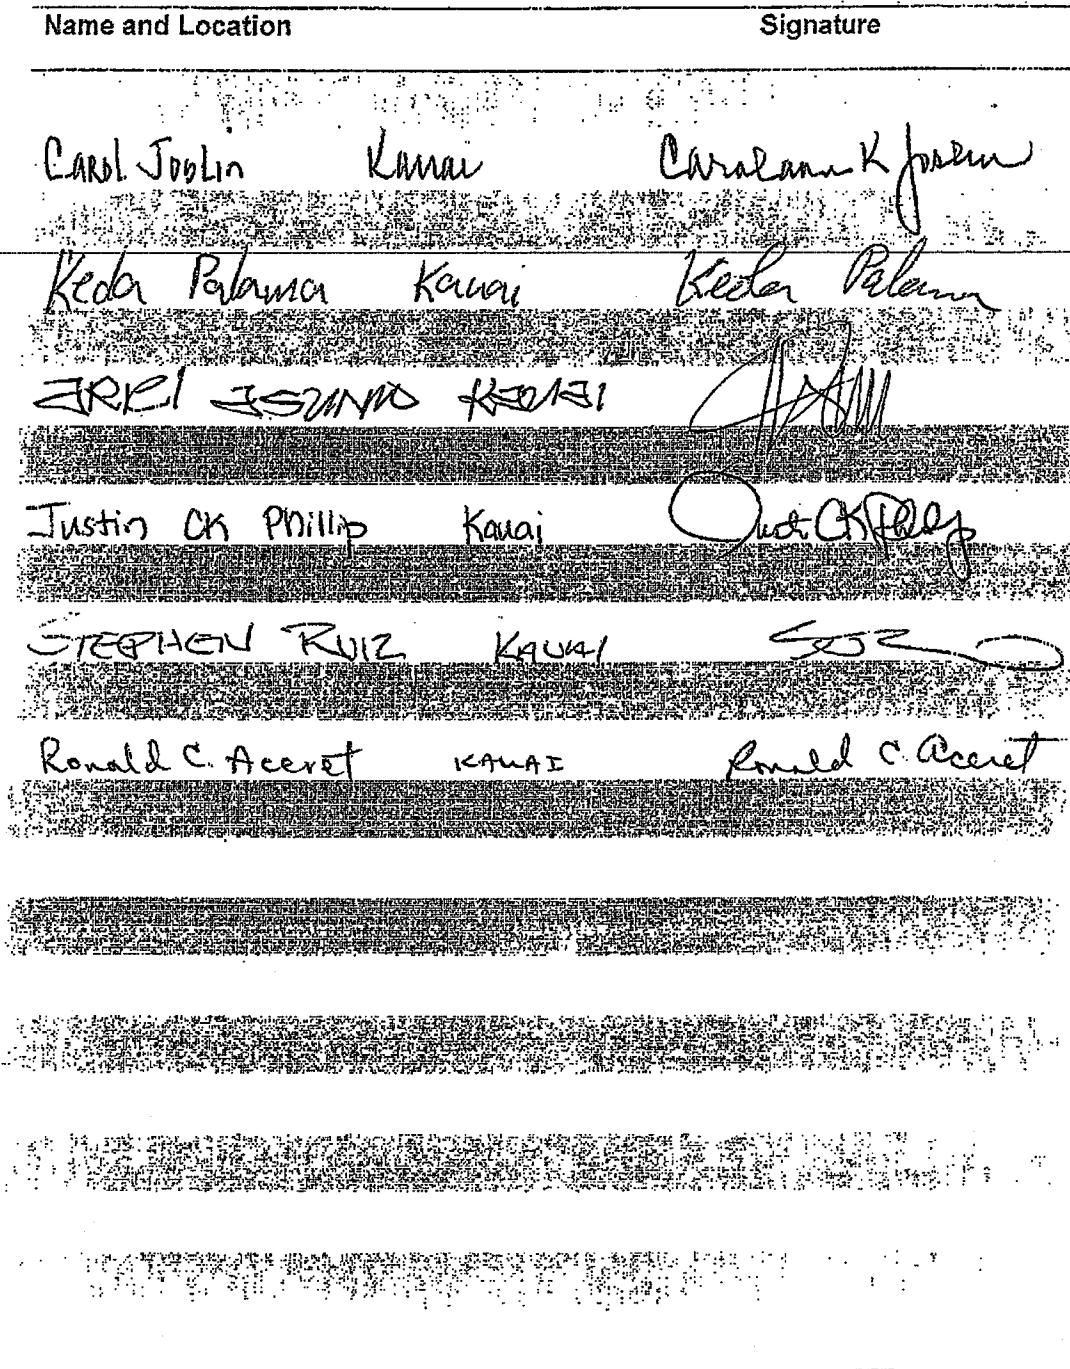 Name and Location Signature
Carol Joslin Kauai Carolann K Joslin
Keda Palama Kauai Keda Palama
Kauai
Justin CK Phillip Kauai Justin CK Phillip
STEPHEN RUIZ KAUAI
Ronald C. Aceret KAUAI Ronald C. Aceret